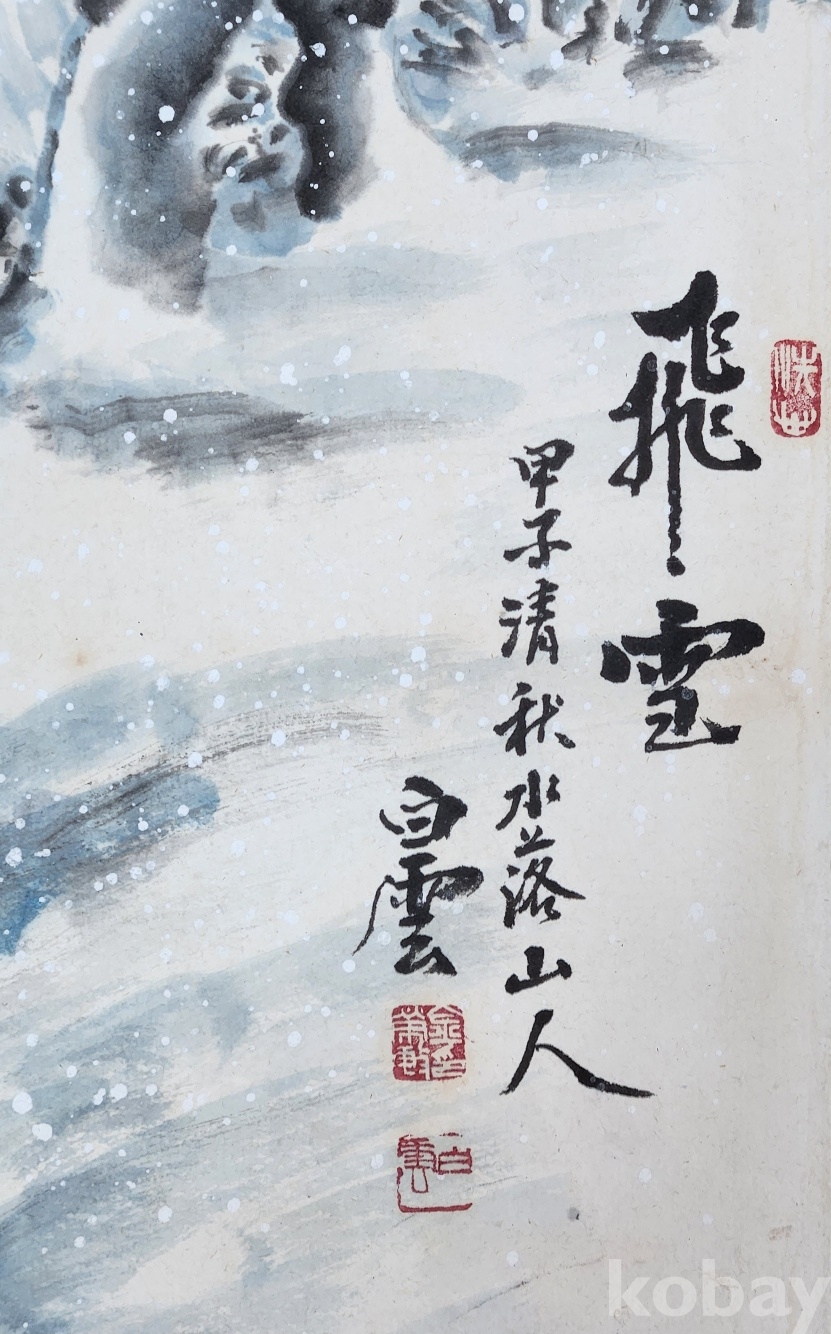 飛雪
甲子清秋水落山人
白雲
kobay